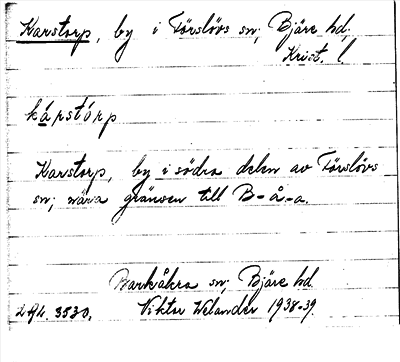 Karstorp, by i Förslövs sn; Bjäre hd,
Krist. l
kárstórp
Karstorp, by i södra delen av Förslövs
sn; nära gränsen till B-å-a.
Barkåkra sn; Bjäre hd
Viktor Welander 1938-39.
3530.